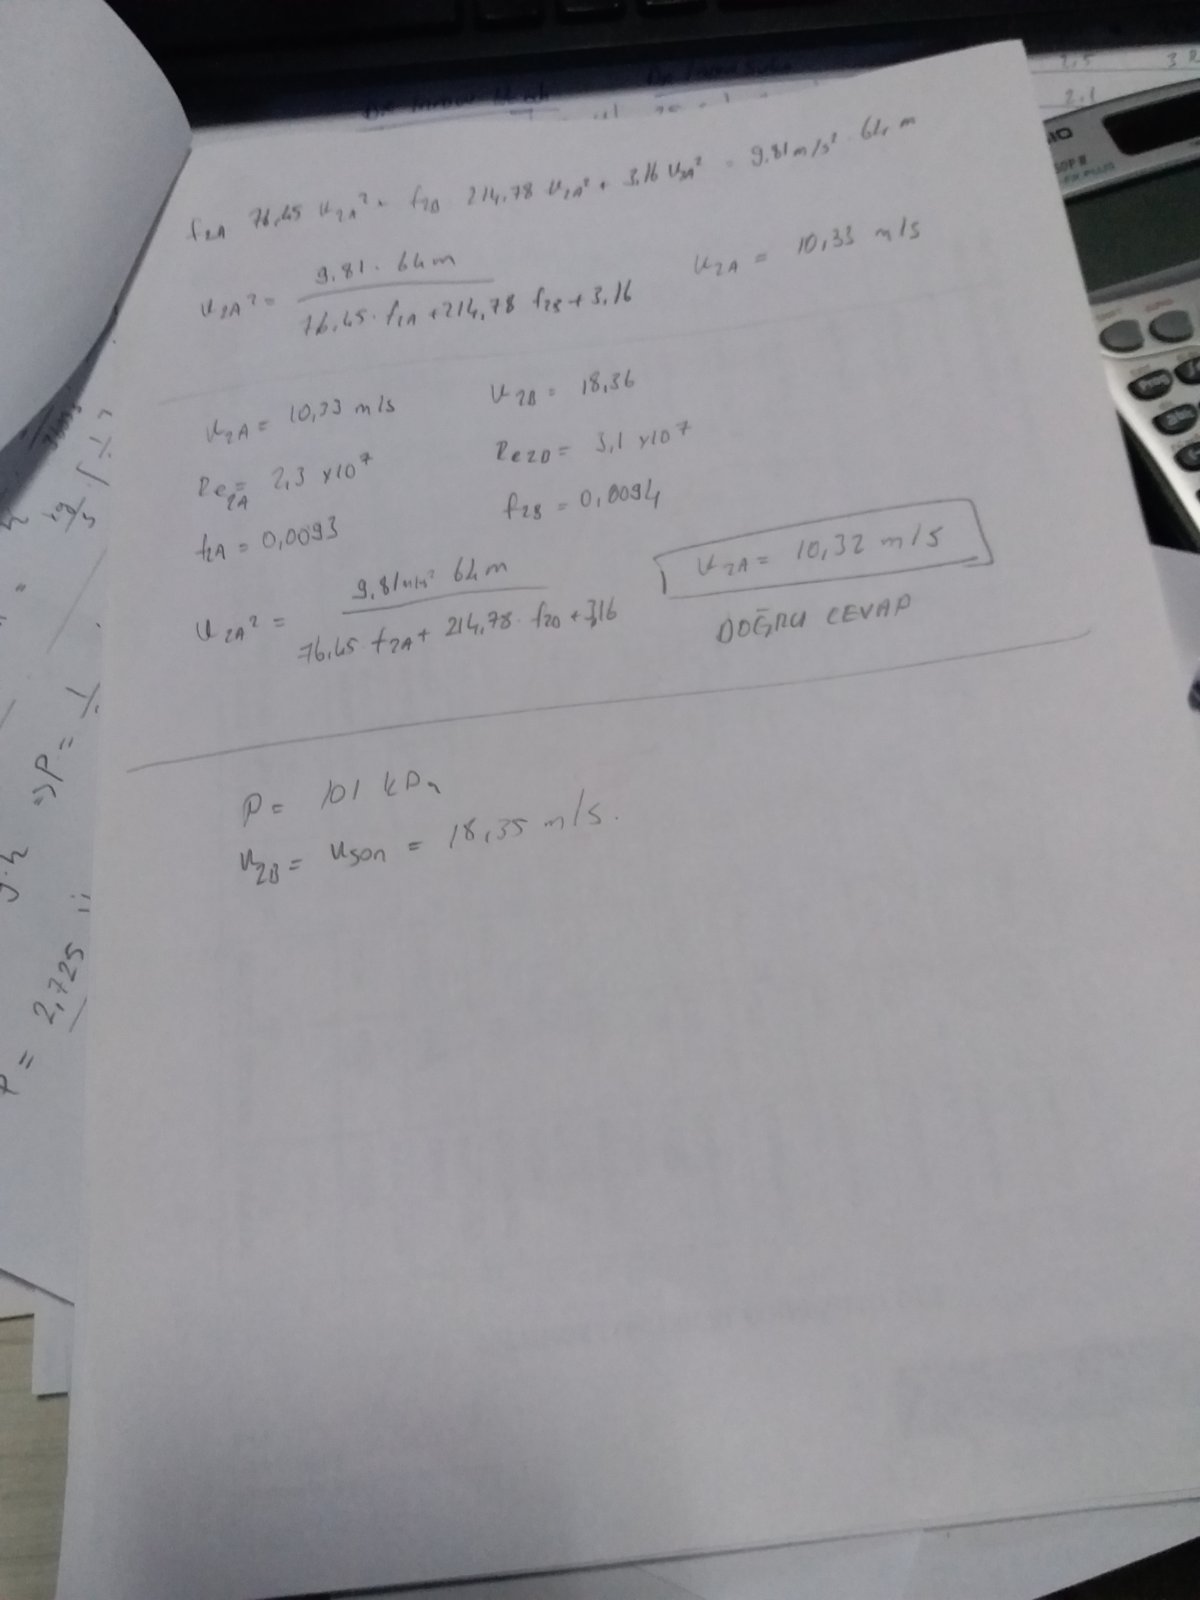 f2A 76,45 u2A² + f2B 214,78 u2A² + 3,16 u2A² = 9.81 m/s² . 64 m
u2A² = 9.81 . 64 m / 76,45 . f2A + 214,78 f2B + 3,16
u2A = 10,33 m/s
u2A = 10,33 m/s u2B = 18,36
Re2A = 2,3 x10⁷ Re2B = 3,1 x10⁷
f2A = 0,0093 f2B = 0,0094
u2A² = 9.81 m/s² 64 m / 76,45 . f2A + 214,78 . f2B + 3,16
u2A = 10,32 m/s
DOĞRU CEVAP
P = 101 kPa
u2B = uson = 18,35 m/s.
P = 2,725
=> P =
2,5
2.1